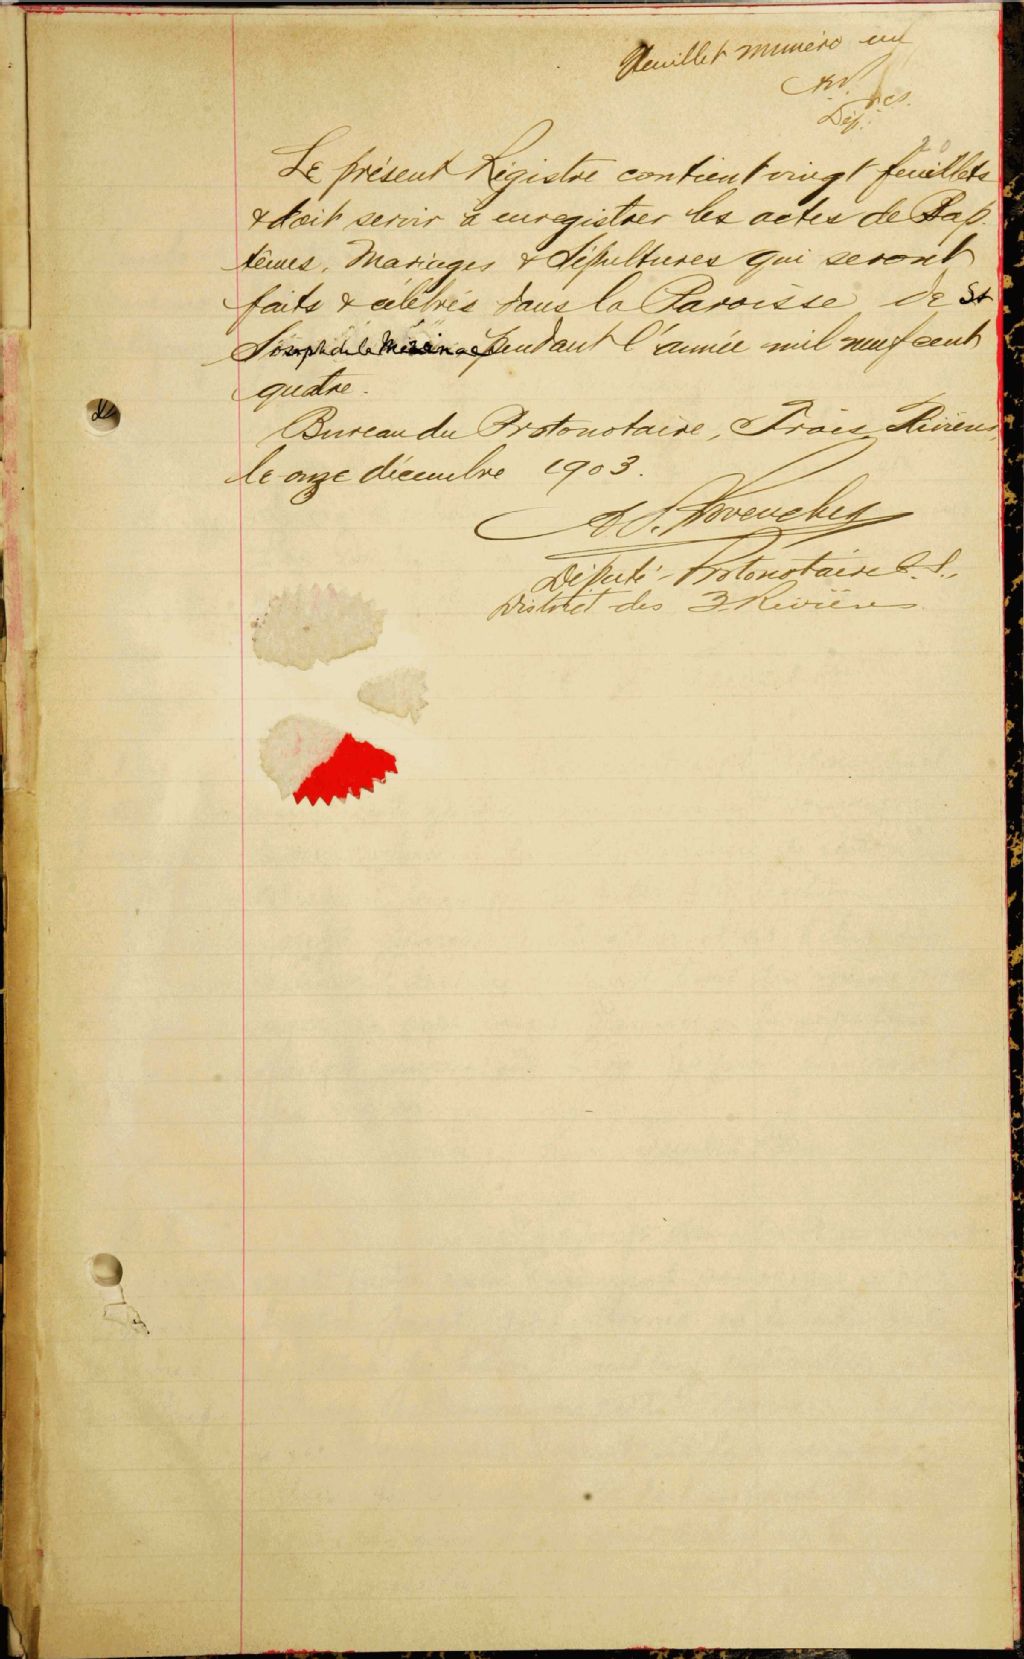 feuillet numéro un
Dép. P.C.S.
Le présent Régistre contient vingt feuillets
& doit servir à enregistrer les actes de Bap.
têmes, Mariages & Sépultures qui seront
faits & célébrés dans la Paroisse de St
Joseph de la pendant l'année mil neuf cent
quatre.
Bureau du Protonotaire, Trois Rivières,
le onze décembre 1903.
Provencher
Député-Protonotaire C. S.,
District des 3 Rivières